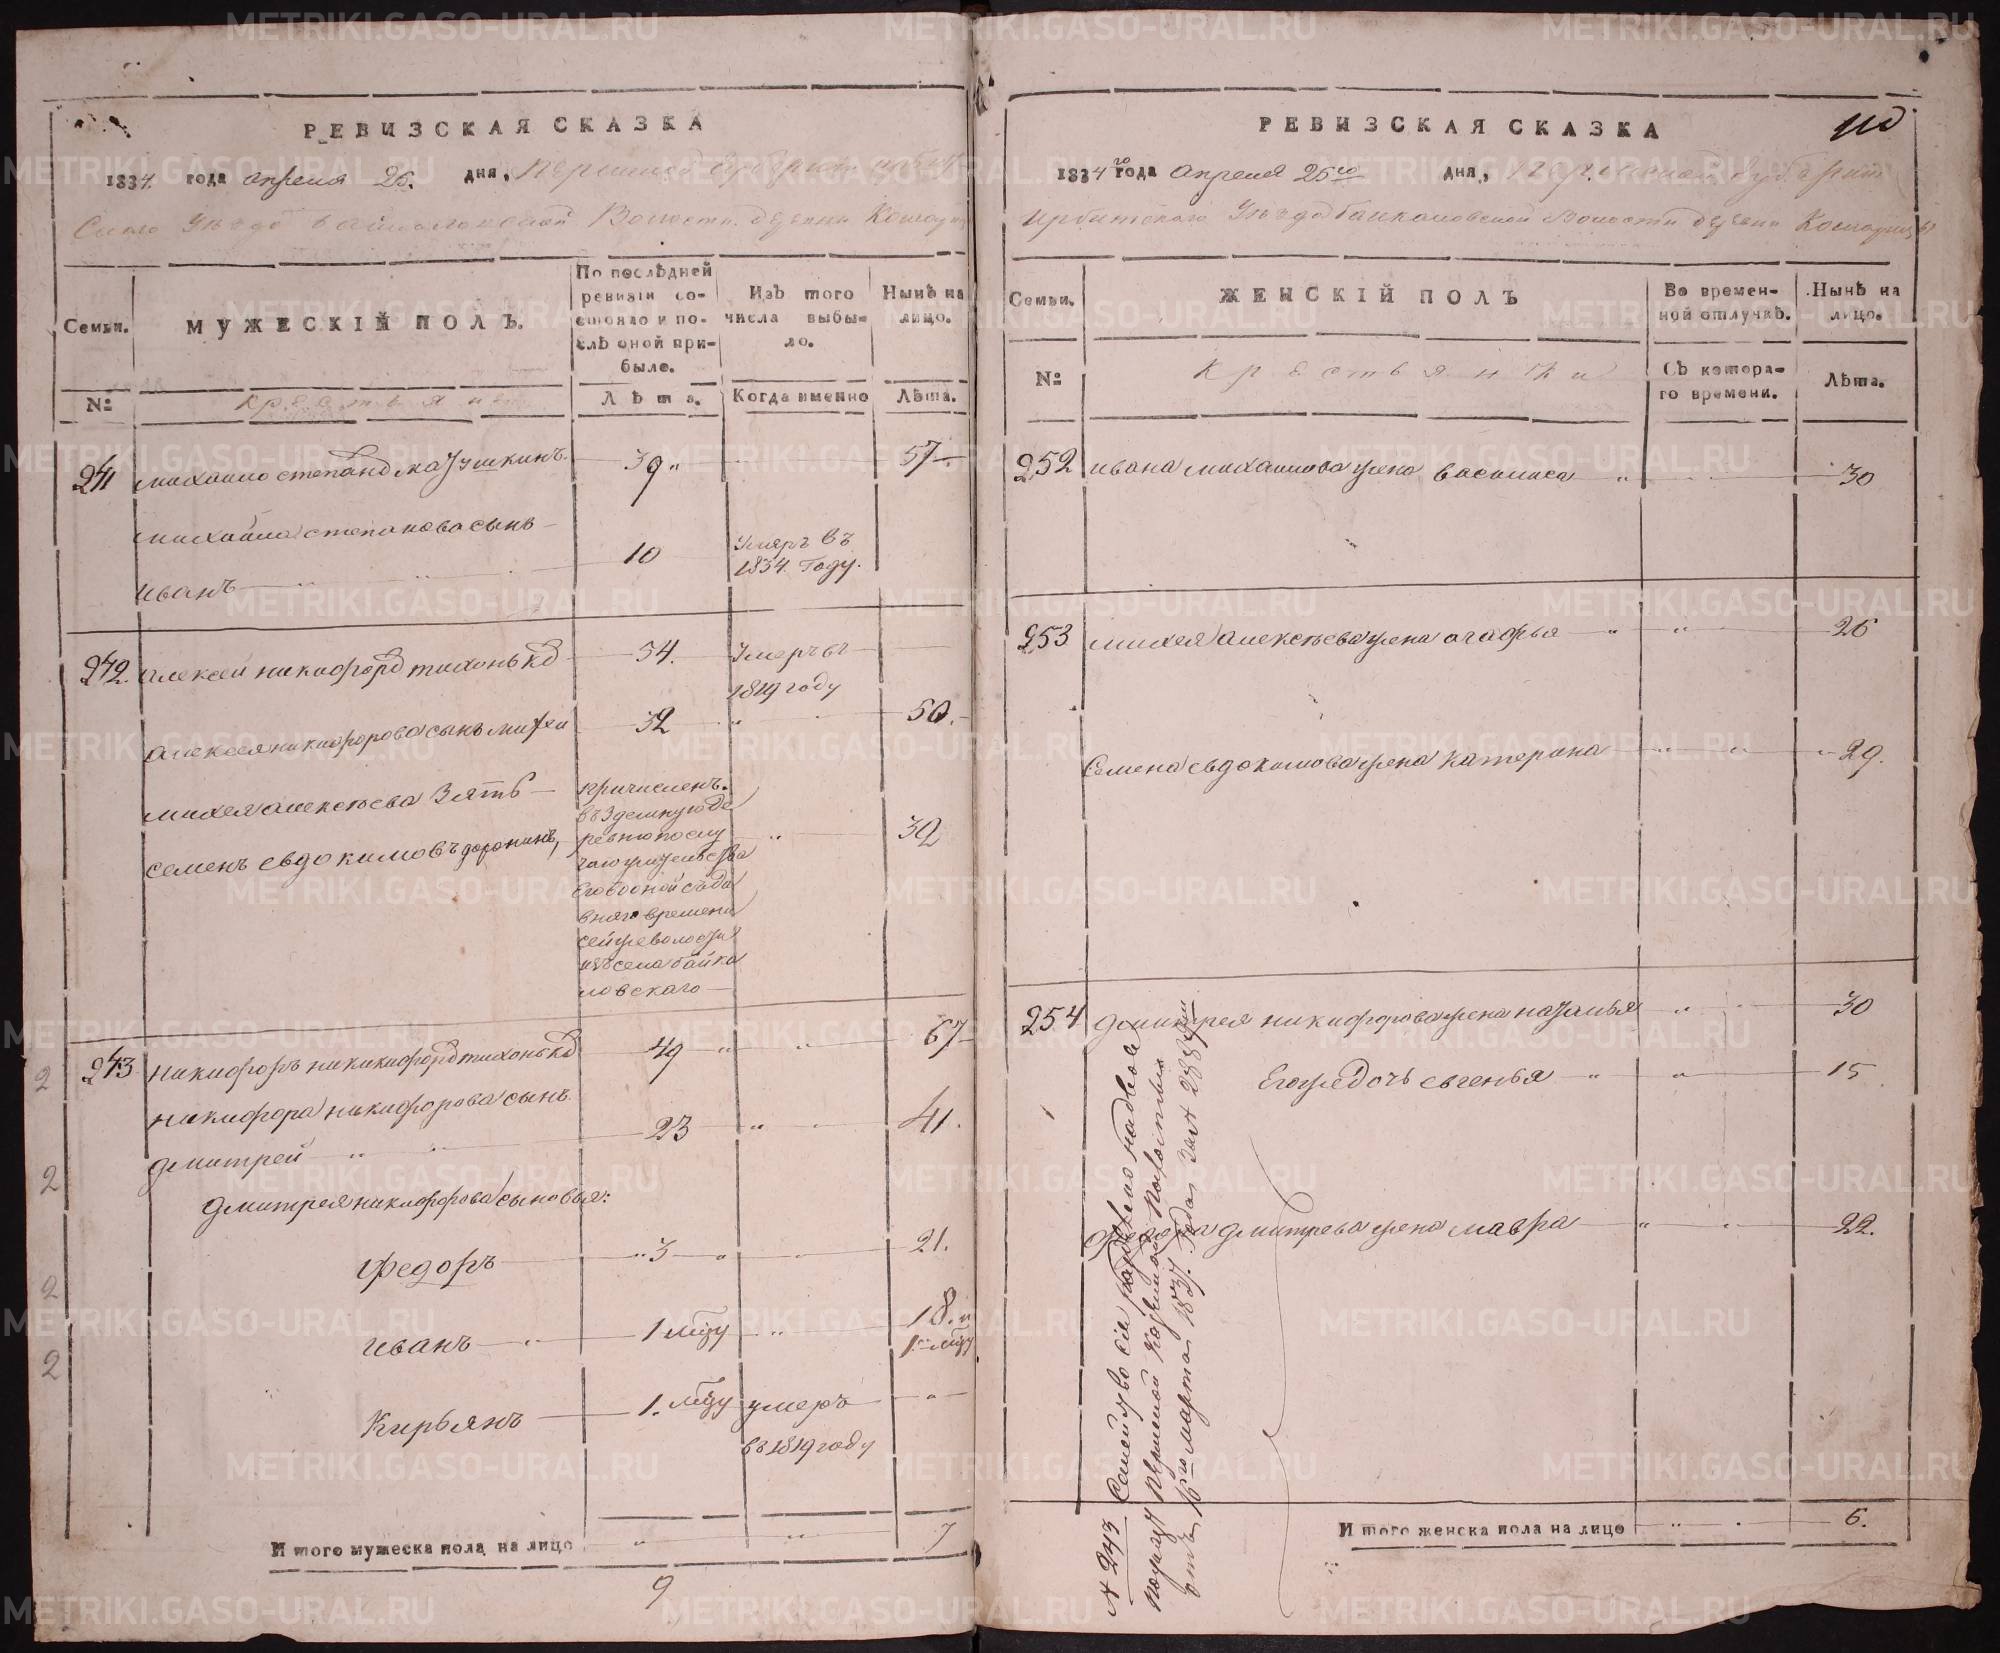 РЕВИЗСКАЯ СКАЗКА
1834. года апреля 25. дня, Пермской Губернии Ирбит
Скаго Уезда Байкаловской Волости деревни Кошкарих
Семьи.
МУЖЕСКІЙ ПОЛЪ.
По послѣдней ревизіи состояло и послѣ оной прибыло.
Изъ того числа выбыло.
Нынѣ на лицо.
№
крестьяне
Лѣта.
Когда именно
Лѣта.
241
михаило степанов
39
57
михаила степанова сынъ
иванъ
10
Умеръ въ
1834. Году.
242.
алексеи никифоров тихоньков
54.
Умеръ въ
1819 году
алексея никифорова сынъ михеи
32
50.
михея алексеева Зять
семенъ евдокимовъ доронинъ,
причисленъ.
въ Здешную де
ревню по слу
чаю жительства
Его во оной съ да
вняго времени
сей же волости
изъ села байка
ловскаго
32
243
никифоръ никифоров тихоньков
49
67
никифора никифорова сынъ
дмитрей
23
41.
дмитрея никифорова сыновья:
федоръ
3
21.
иванъ
1 мцу
18. и
1 мцу
Кирьянъ
1. мцу
умеръ
въ 1819 году
И того мужеска пола на лицо
7
9
2
2
2
2
РЕВИЗСКАЯ СКАЗКА
110
1834 го года апреля 25го дня, Пермской Губернии
Ирбитскаго Уезда Байкаловской Волости деревни
Семьи.
ЖЕНСКІЙ ПОЛЪ
Во временной отлучкѣ.
Нынѣ на лицо.
№
крестьянки
Съ котораго времени.
Лѣта.
252
ивана михаилова жена василиса
30
253
михея алексеева жена агафья
26
Семена евдокимова жена катерина
29.
254
дмитрея никифорова жена наталья
30
Его же дочь евгенья
15
Федора дмитрева жена мавра
22.
И того женска пола на лицо
6.
№ 243 Семейство сіе
Пермской Казенной
отъ 16го марта 1837. Года За №